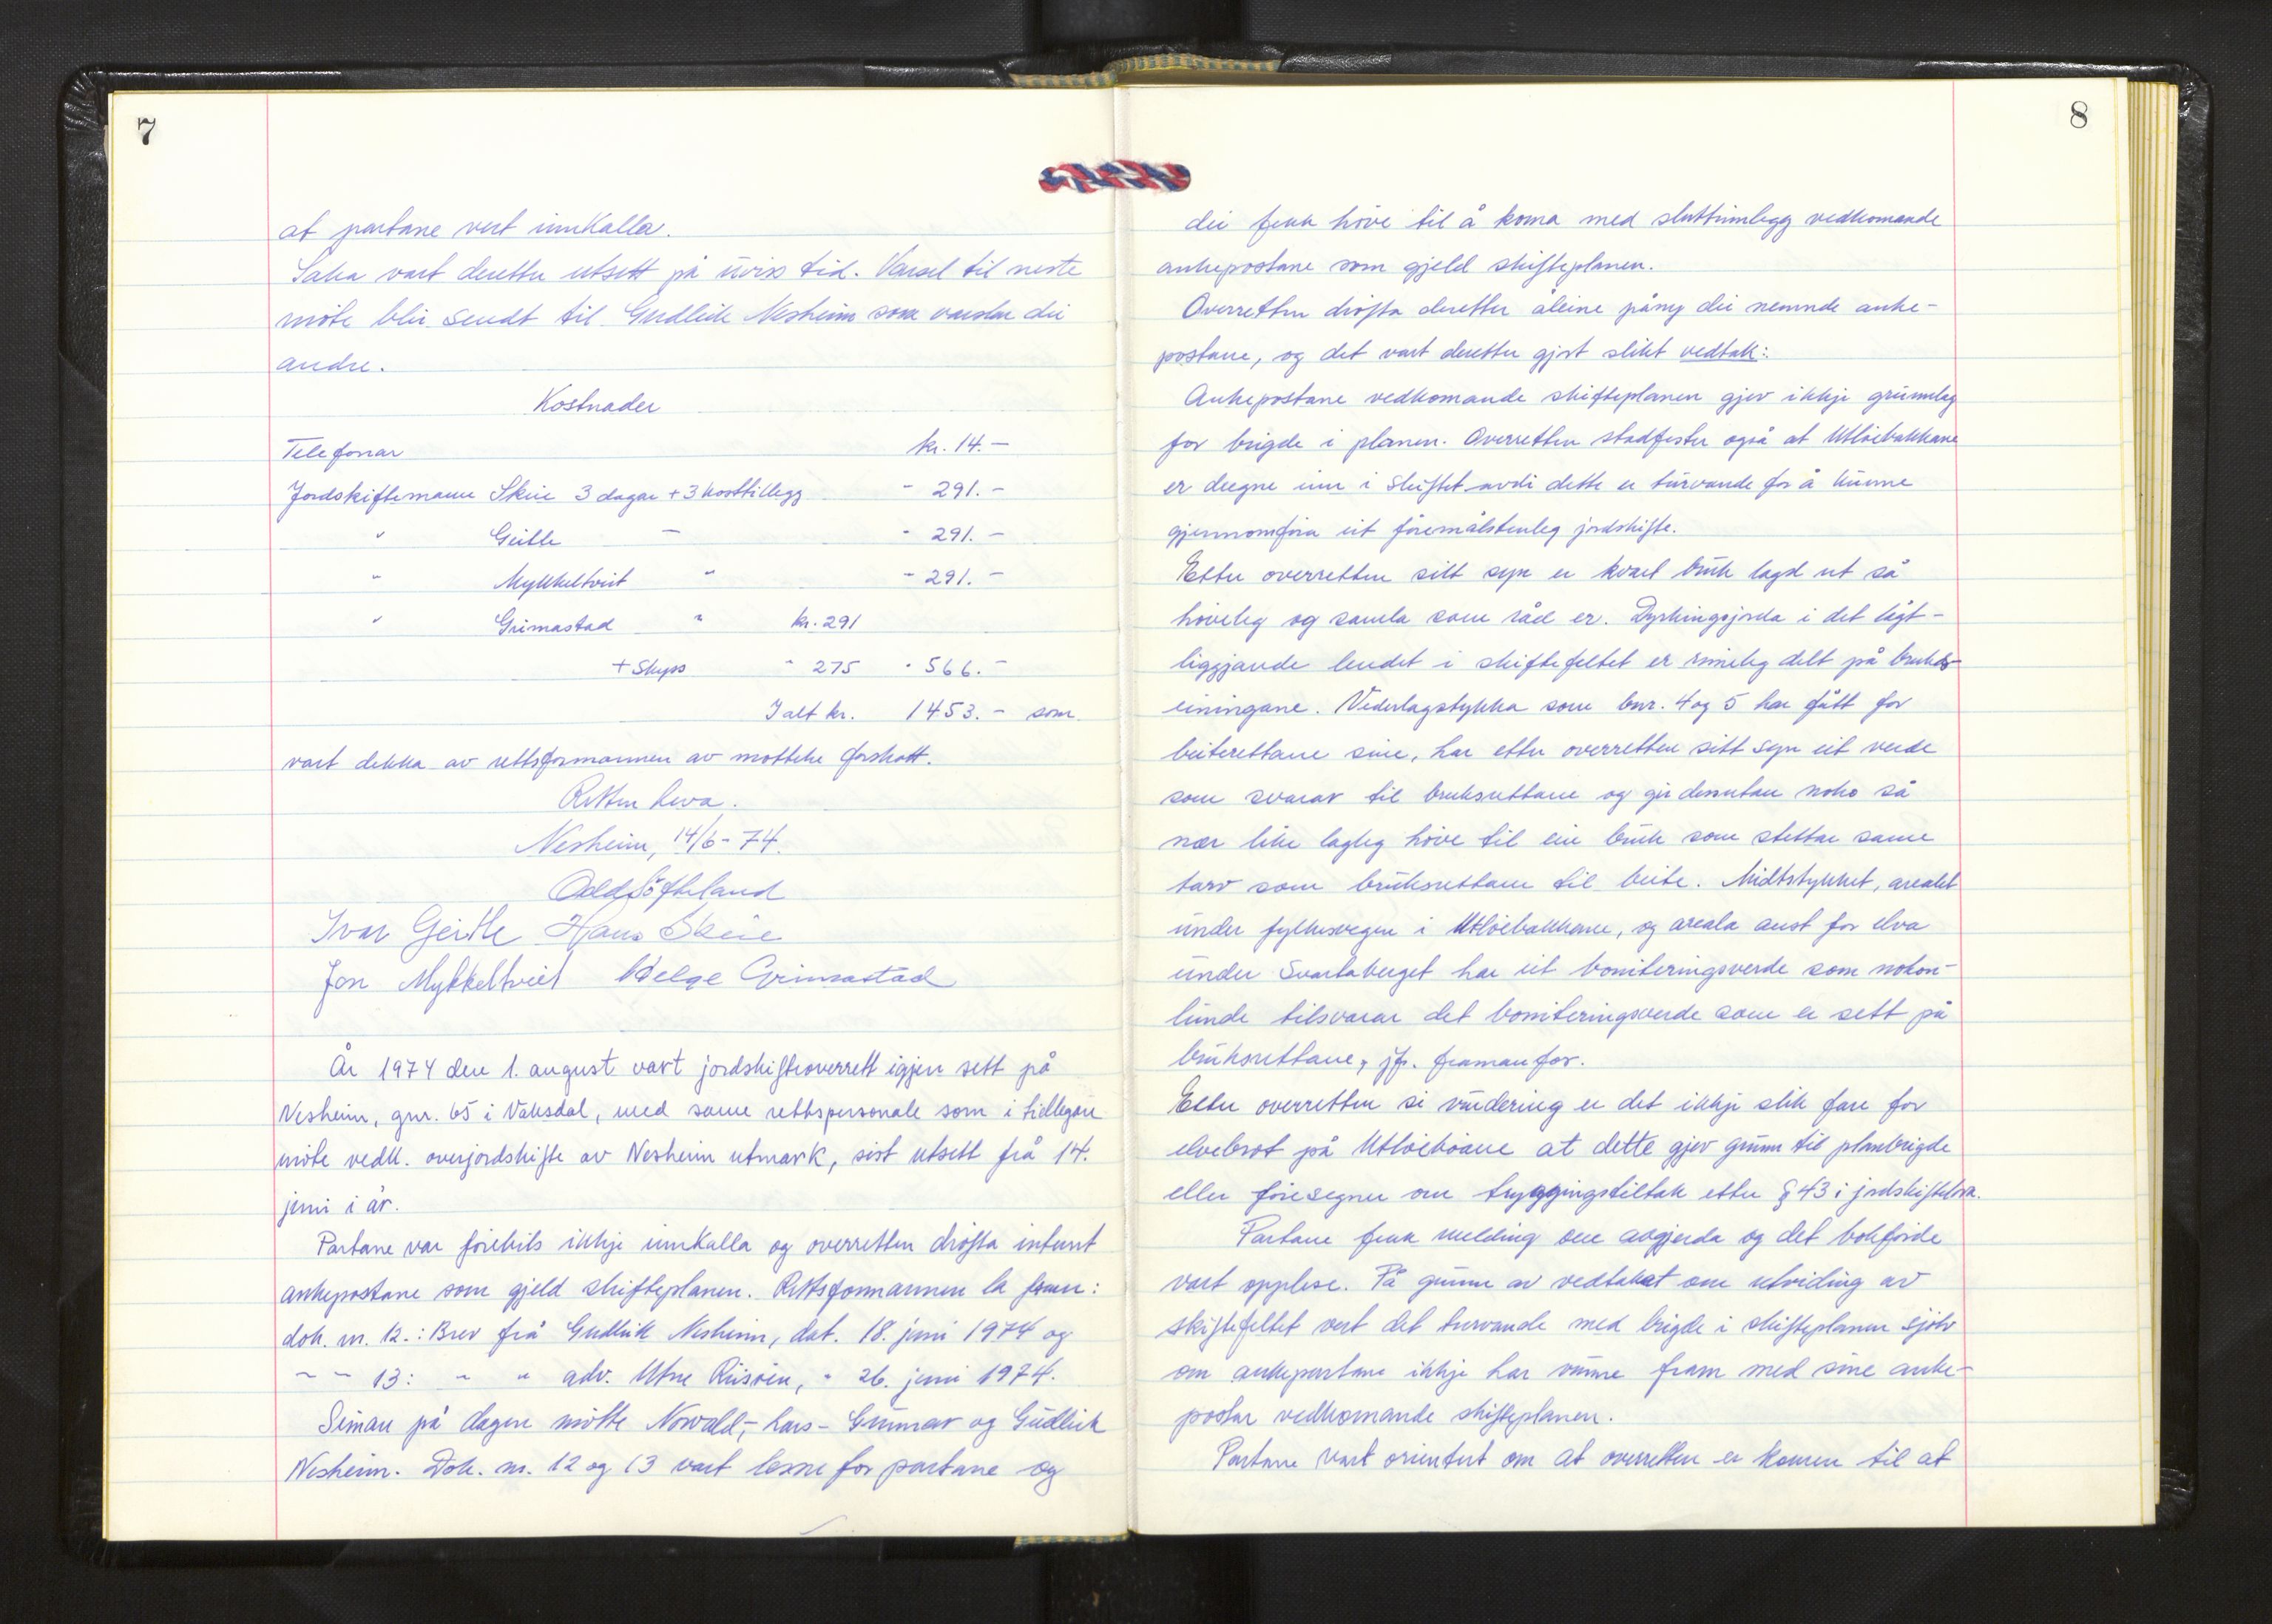 7
at partane vert innkalla.
Saka vart deretter utsett på uviss tid. Varsel til neste
møte blir sendt til Gudleik Nesheim som varslar dei
andre.
Kostnader
Telefonar kr. 14.-
Jordskiftemann Skeie 3 dagar + 3 kosttillegg - 291.-
" Geitle - - 291.-
" Mykkeltveit " - 291.-
" Grimastad " kr. 291
+ Skyss - 275 - 566.-
Ialt kr. 1453.- som
vart dekka av rettsformannen av motteke forskott.
Retten heva.
Nesheim, 14/6-74.
Odd Søfteland
Ivar Geitle Hans Skeie
Jon Mykkeltveit Helge Grimastad
År 1974 den 1. august vart jordskifteoverrett igjen sett på
Nesheim, gnr. 65 i Vaksdal, med same rettspersonale som i tidlegare
møte vedk. overjordskifte av Nesheim utmark, sist utsett frå 14.
juni i år.
Partane var førebils ikkje innkalla og overretten drøfta internt
ankepostane som gjeld skifteplanen. Rettsformannen la fram:
dok. nr. 12.: Brev frå Gudleik Nesheim, dat. 18. juni 1974 og
- - 13: - " adv. Utne Riisøen, " 26. juni 1974.
Seinare på dagen møtte Norvald-, Lars- Gunnar og Gudleik
Nesheim. Dok. nr. 12 og 13 vart lesne for partane og
8
dei fekk høve til å koma med sluttinnlegg vedkomande
ankepostane som gjeld skifteplanen.
Overretten drøfta deretter åleine påny dei nemnde anke-
postane, og det vart deretter gjort slikt vedtak:
Ankepostane vedkomande skifteplanen gjev ikkje grunnlag
for brigde i planen. Overretten stadfester også at Utløebakkane
er dregne inn i skiftet avdi dette er turvande for å kunne
gjennomføra eit føremålstenleg jordskifte.
Etter overretten sitt syn er kvart bruk lagd ut så
høveleg og samla som råd er. Dyrkingsjorda i det lågt-
liggjande lendet i skiftefeltet er rimeleg delt på bruks-
einingane. Vederlagstykka som bnr. 4 og 5 har fått for
beiterettane sine, har etter overretten sitt syn eit verde
som svarar til bruksrettane og gir dessutan noko så
nær like lagleg høve til ein bruk som stettar same
tarv som bruksrettane til beite. Midtstykket, arealet
under fylkesvegen i Utløebakkane, og areala aust for elva
under Svartaberget har eit boniteringsverde som nokon-
lunde tilsvarar det boniteringsverde som er sett på
bruksrettane, jfr. framanfor.
Etter overretten si vurdering er det ikkje slik fare for
elvebrot på Utløebøane at dette gjev grunn til planbrigde
eller føresegner om tryggingstiltak etter § 43 i jordskiftelova.
Partane fekk melding om avgjerda og det bokførde
vart opplese. På grunn av vedtaket om utviding av
skiftefeltet vert det turvande med brigde i skifteplanen sjølv
om ankepartane ikkje har vunne fram med sine anke-
postar vedkomande skifteplanen.
Partane vart orientert om at overretten er komen til at